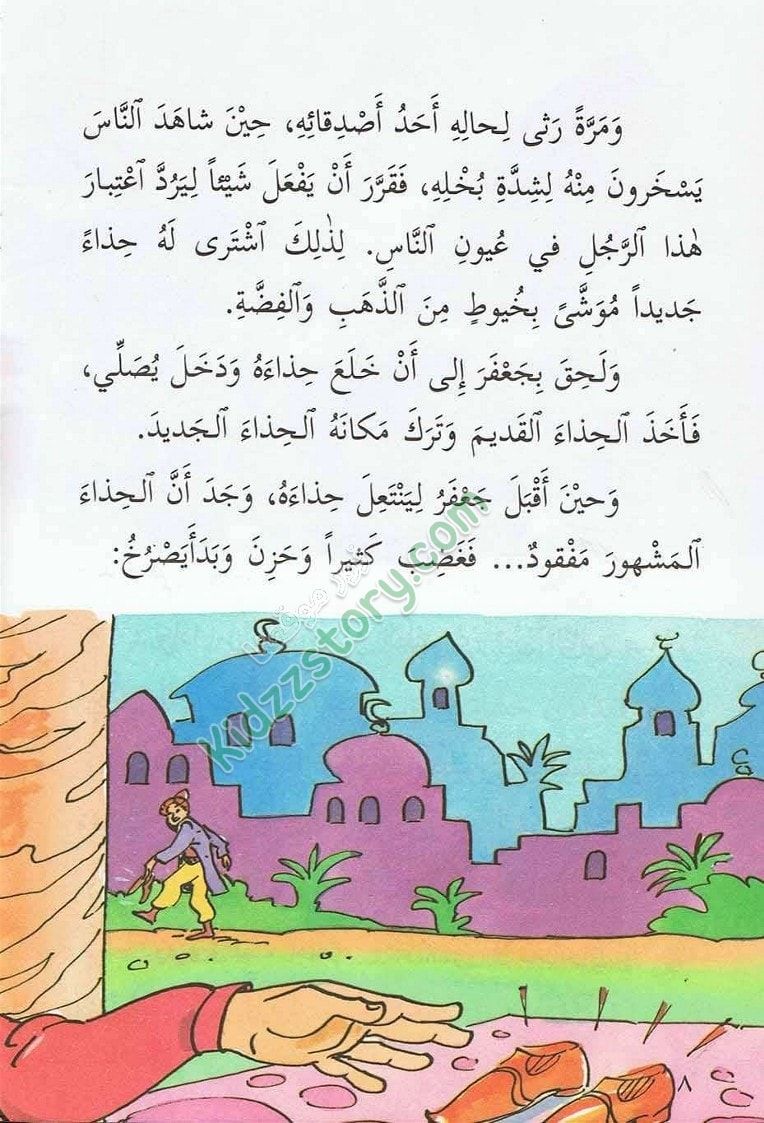 وَمَرَّةً رَثى لِحالِهِ أَحَدُ أَصْدِقائِهِ، حِيْنَ شاهَدَ ٱلنَّاسَ
يَسْخَرونَ مِنْهُ لِشِدَّةِ بُخْلِهِ، فَقَرَّرَ أَنْ يَفْعَلَ شَيْئاً لِيَرُدَّ ٱعْتِبارَ
هٰذا ٱلرَّجُلِ في عُيونِ ٱلنَّاسِ. لِذٰلِكَ ٱشْتَرى لَهُ حِذاءً
جَديداً مُوَشَّىً بِخُيوطٍ مِنَ ٱلذَّهَبِ وَٱلفِضَّةِ.
وَلَحِقَ بِجَعْفَرَ إِلى أَنْ خَلَعَ حِذاءَهُ وَدَخَلَ يُصَلِّي،
فَأَخَذَ ٱلحِذاءَ ٱلقَديمَ وَتَرَكَ مَكانَهُ ٱلحِذاءَ ٱلجَديدَ.
وَحيْنَ أَقْبَلَ جَعْفَرُ لِيَنْتَعِلَ حِذاءَهُ، وَجَدَ أَنَّ ٱلحِذاءَ
ٱلمَشْهورَ مَفْقودٌ... فَغَضِبَ كَثيراً وَحَزِنَ وَبَدَأَيَصْرُخُ:
kidzzstory.com
٨